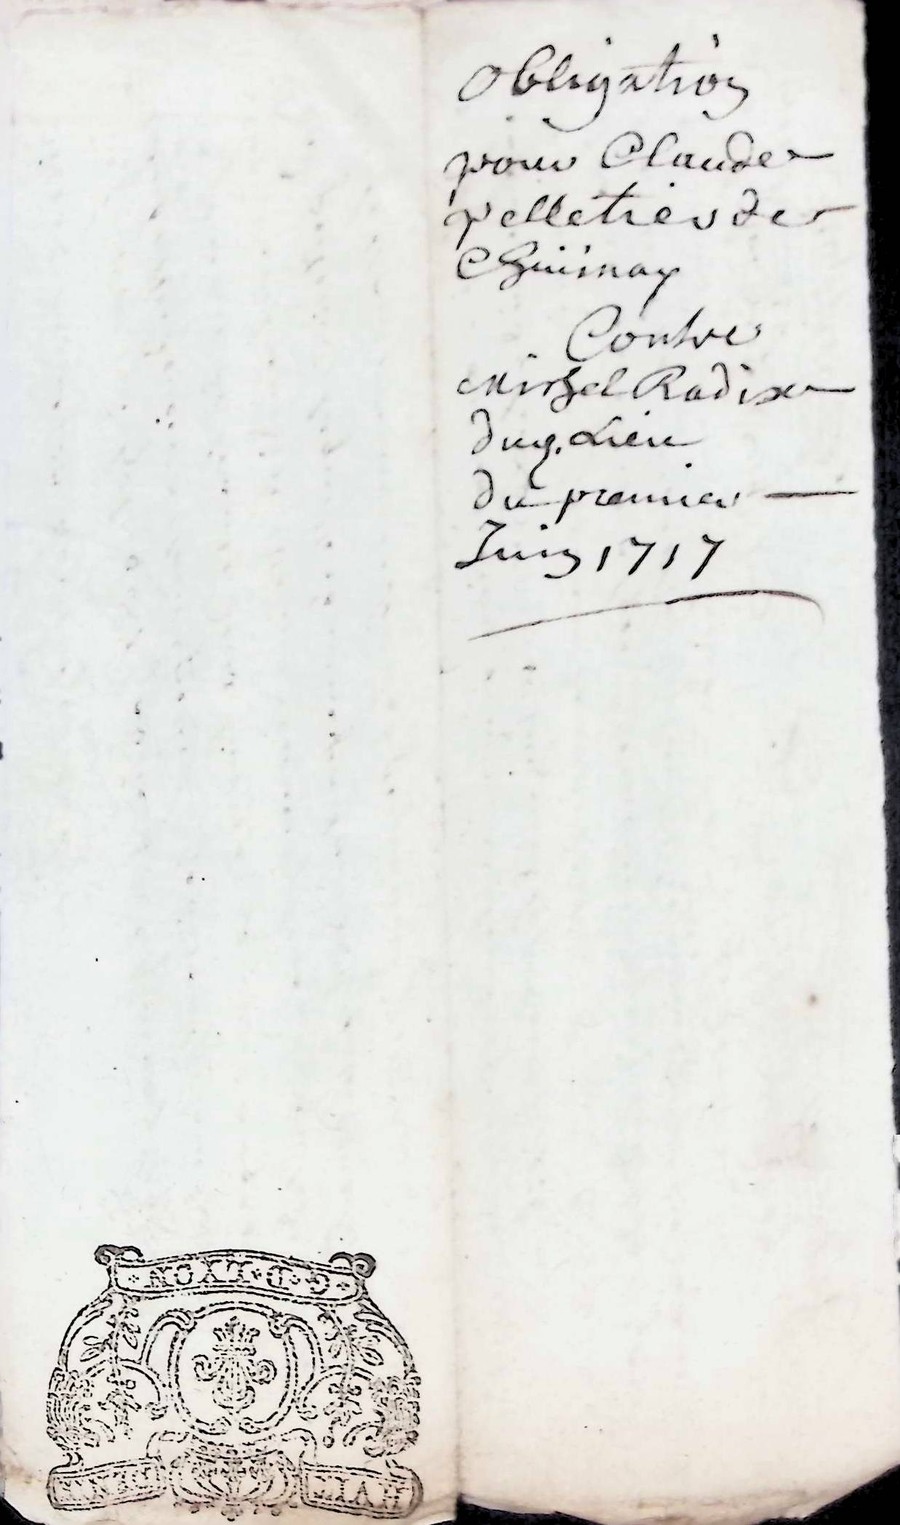 Obligation
pour Claude
pelletier de
Chüinay
Contre
Michel Radix
dud. Lieu
du premier
Juin 1717
G·D·LYON
HVIT DENIERS